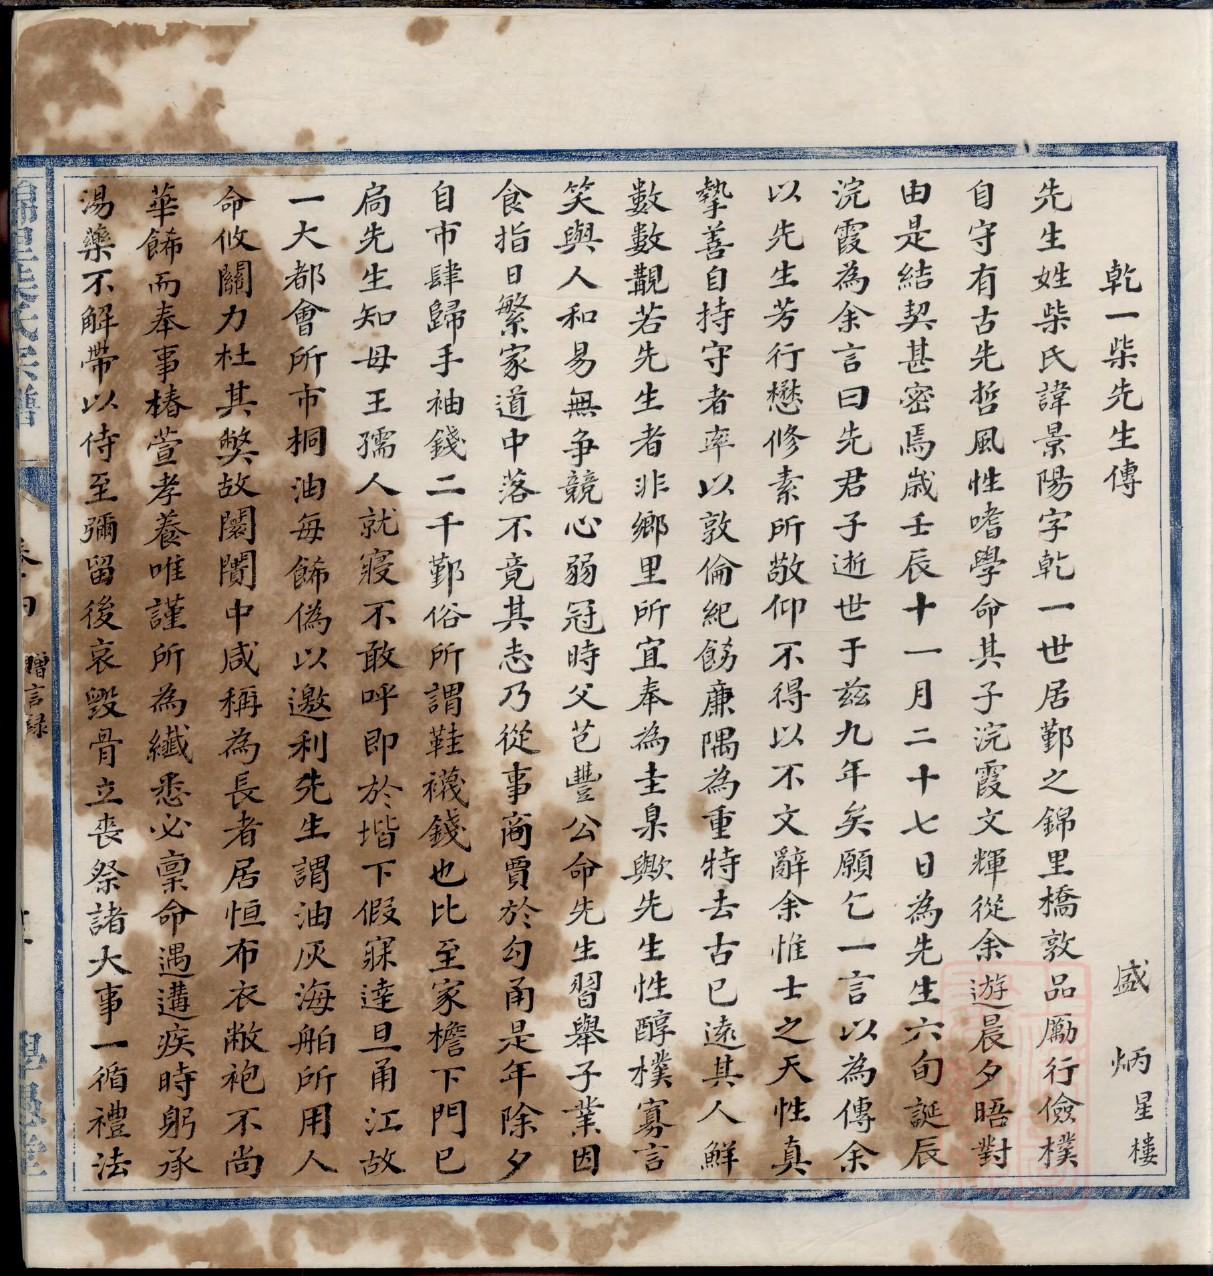 乾一柴先生傳
盛炳星樓
先生姓柴氏諱景陽字乾一世居鄞之錦里橋敦品勵行儉樸
自守有古先哲風性嗜學命其子浣霞文輝從余遊晨夕晤對
由是結契甚密焉歲壬辰十一月二十七日為先生六旬誕辰
浣霞為余言曰先君子逝世于茲九年矣願乞一言以為傳余
以先生芳行懋修素所敬仰不得以不文辭余惟士之天性真
摯善自持守者率以敦倫紀飭廉隅為重特去古已遠其人鮮
數數覯若先生者非鄉里所宜奉為圭臬歟先生性醇樸寡言
笑與人和易無争競心弱冠時父芑豐公命先生習舉子業因
食指日繁家道中落不竟其志乃從事商賈於勾甬是年除夕
自市肆歸手袖錢二千鄞俗所謂鞋襪錢也比至家檐下門已
扃先生知母王孺人就寢不敢呼即於堦下假寐達旦甬江故
一大都會所市桐油每餙偽以邀利先生謂油灰海舶所用人
命攸關力杜其獘故闤闠中咸稱為長者居恒布衣敝袍不尚
華餙而奉事椿萱孝養唯謹所為纖悉必稟命遇遘疾時躬承
湯藥不解帶以侍至彌留後哀毀骨立喪祭諸大事一循禮法
贈言録